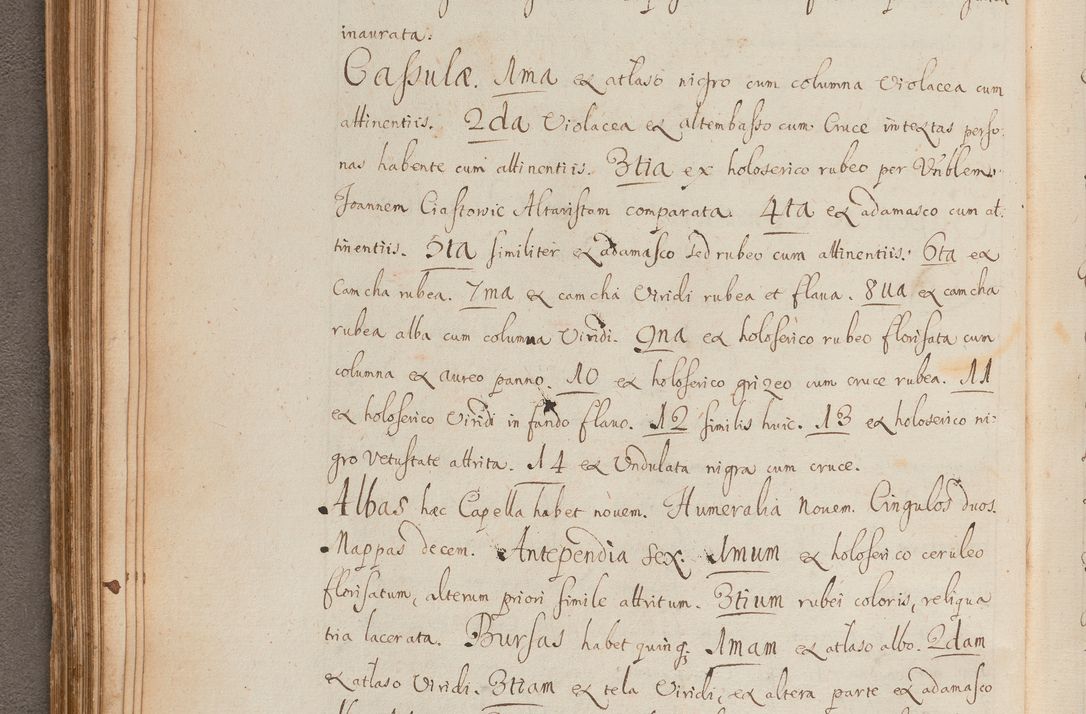 inaurata.
Cassulæ. 1ma ex atłaso nigro cum columna Violacea cum
attinentiis. 2da Violacea ex altembasso cum Cruce intextas perso-
nas habente cum attinentiis. 3tia ex holoserico rubeo per Vnblem
Joannem Ciastowic Altaristam comparata. 4ta ex adamasco cum at-
tinentiis. 5ta similiter ex adamasco sed rubeo cum attinentiis. 6ta ex
Camcha rubea. 7ma ex camcha Viridi rubea et flaua. 8ua ex camcha
rubea alba cum columna Viridi. 9na ex holoserico rubeo florisata cum
columna ex aureo panno. 10 ex holoserico grizeo cum cruce rubea. 11
ex holoserico Viridi in fundo flauo. 12 similis huic. 13 ex holoserico ni-
gro Vetustate attrita. 14 ex Vndulata nigra cum cruce.
Albas hæc Capella habet nouem. Humeralia Nouem. Cingulos duos.
Mappas decem. Antependia sex. 1mum ex holoserico ceruleo
florisatum, alterum priori simile attritum. 3tium rubei coloris, reliqua
tria lacerata. Bursas habet quinq; 1mam ex atłaso albo. 2dam
ex atłaso Viridi. 3tiam ex tela Viridi, ex altera parte ex adamasco